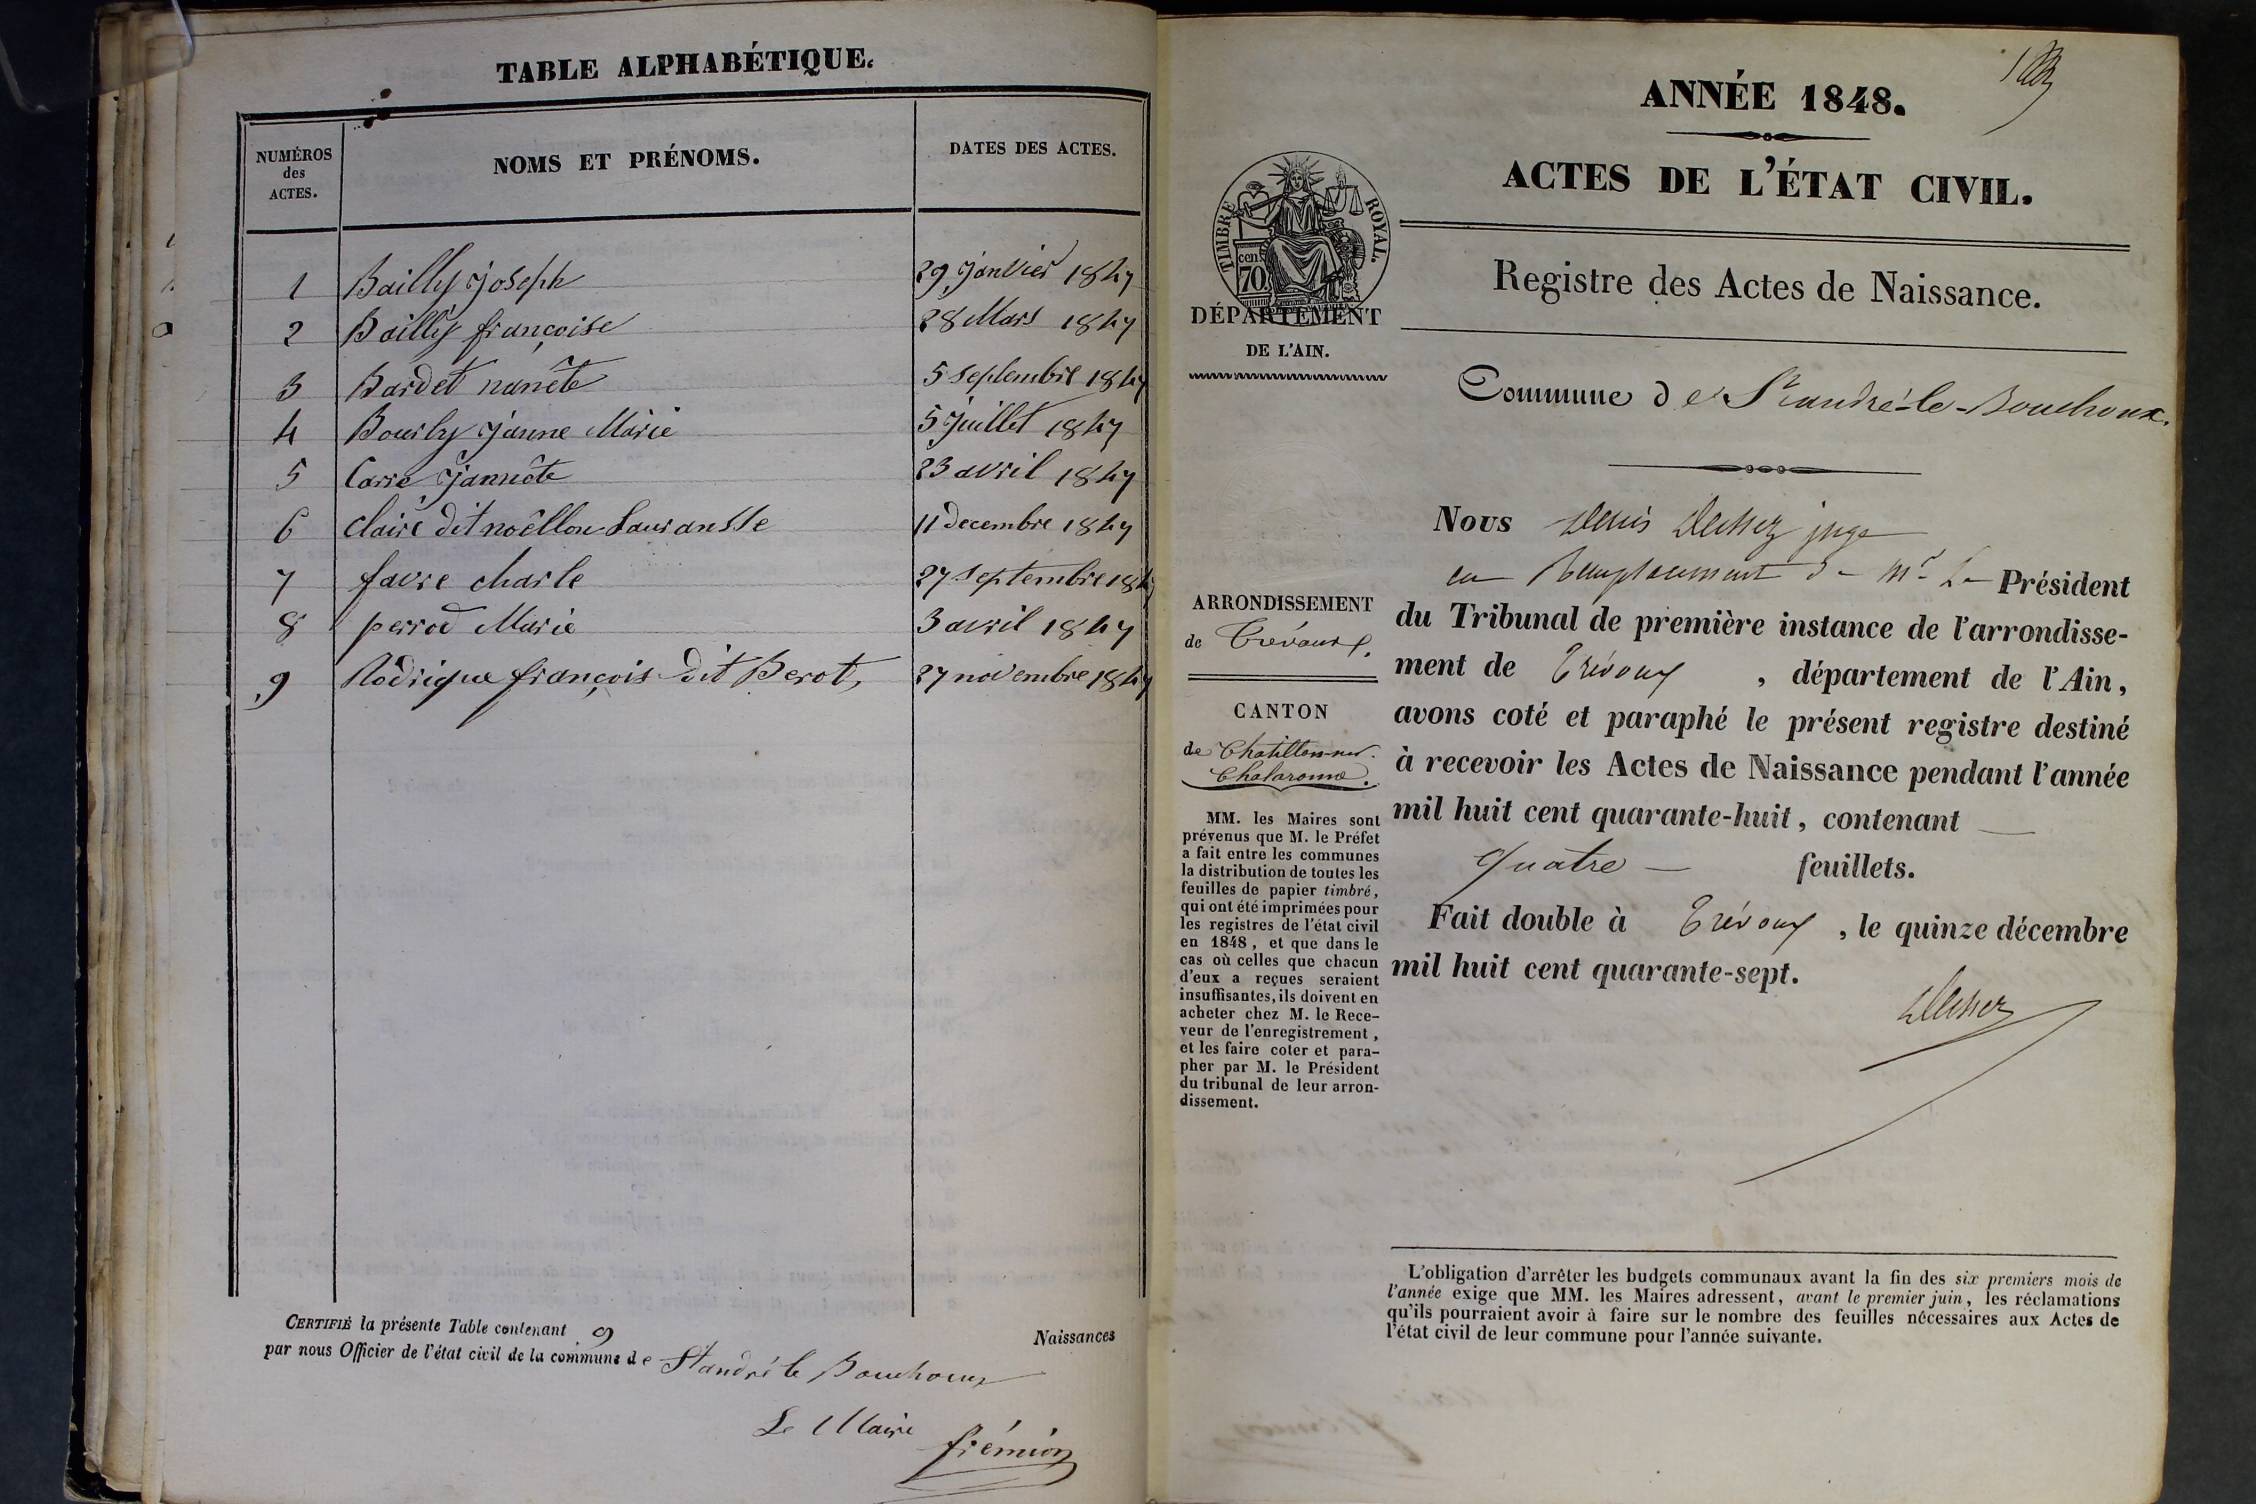 TABLE ALPHABÉTIQUE.
NUMÉROS des ACTES.
NOMS ET PRÉNOMS.
DATES DES ACTES.
1 Bailly Joseph 29 Janvier 1847
2 Bailly françoise 28 Mars 1847
3 Bardet nanête 5 septembre 1847
4 Bourly Janne Marie 5 Juillet 1847
5 Carre Jannôte 23 avril 1847
6 Claire dit noêllon Lauransse 11 decembre 1847
7 favre charle 27 septembre 1847
8 perrod Marie 3 avril 1847
9 Rodrique françois dit Berot 27 novembre 1847
CERTIFIÉ la présente Table contenant 9 Naissances
par nous Officier de l'état civil de la commune de St andré le Bouchoux
Le Maire
frémion
ANNÉE 1848.
ACTES DE L'ÉTAT CIVIL.
TIMBRE ROYAL.
cen. 70
DÉPARTEMENT
DE L'AIN.
Registre des Actes de Naissance.
Commune de St andré-le-Bouchoux.
Nous Denis juge
en Remplacement de Mr Le Président
du Tribunal de première instance de l'arrondisse-
ment de Trévoux, département de l'Ain,
avons coté et paraphé le présent registre destiné
à recevoir les Actes de Naissance pendant l'année
mil huit cent quarante-huit, contenant
quatre feuillets.
Fait double à Trévoux, le quinze décembre
mil huit cent quarante-sept.
ARRONDISSEMENT
de Trévoux.
CANTON
de Chatillon-sur-
Chalaronne.
MM. les Maires sont
prévenus que M. le Préfet
a fait entre les communes
la distribution de toutes les
feuilles de papier timbré,
qui ont été imprimées pour
les registres de l'état civil
en 1848, et que dans le
cas où celles que chacun
d'eux a reçues seraient
insuffisantes, ils doivent en
acheter chez M. le Rece-
veur de l'enregistrement,
et les faire coter et para-
pher par M. le Président
du tribunal de leur arron-
dissement.
L'obligation d'arrêter les budgets communaux avant la fin des six premiers mois de
l'année exige que MM. les Maires adressent, avant le premier juin, les réclamations
qu'ils pourraient avoir à faire sur le nombre des feuilles nécessaires aux Actes de
l'état civil de leur commune pour l'année suivante.